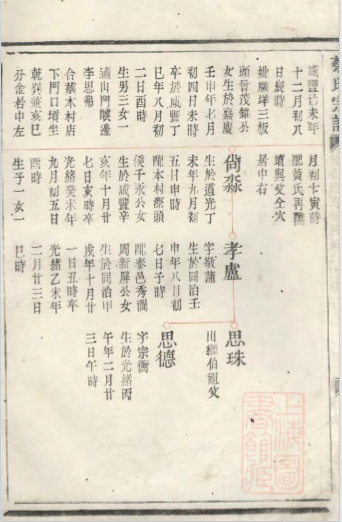 氏宗譜
咸豐己未年
十二月初八
日辰時
頭晉茂錐公
女生於嘉慶
壬申年七月
初四日未時
卒於咸豐丁
巳年八月初
二日酉時
生男三女一
適山門殿邊
李思弗
合葬木村店
下門口坐
兼亥巳
分金中左
月初七寅時
配黃氏再醮
壙與父仝穴
居中右
尚淼
生於道光丁
未年九月初
五日申時
配本村漈頭
侯千永公女
生於咸豐辛
亥年十月廿
七日亥時卒
光緒癸未年
九月初五日
酉時
生子一女一
孝盧
字敬蒲
生於同治壬
申年八月初
七日子時
配泰邑秀澗
周新屏公女
生於同治甲
戌年十月廿
一日丑時卒
光緒乙未年
二月廿三日
巳時
思珠
出繼伯祖父
思德
字宗衡
生於光緒丙
午年二月廿
三日午時
上海圖
書館